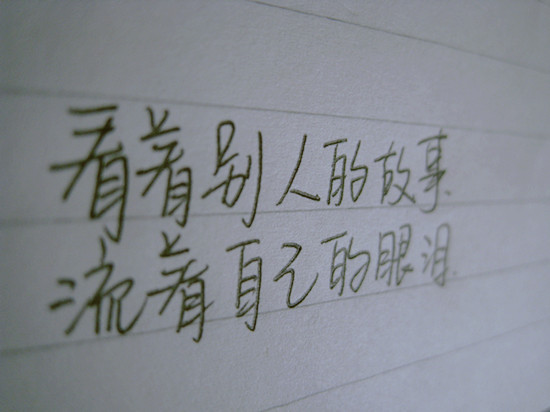 看着别人的故事.
流着自己的眼泪.